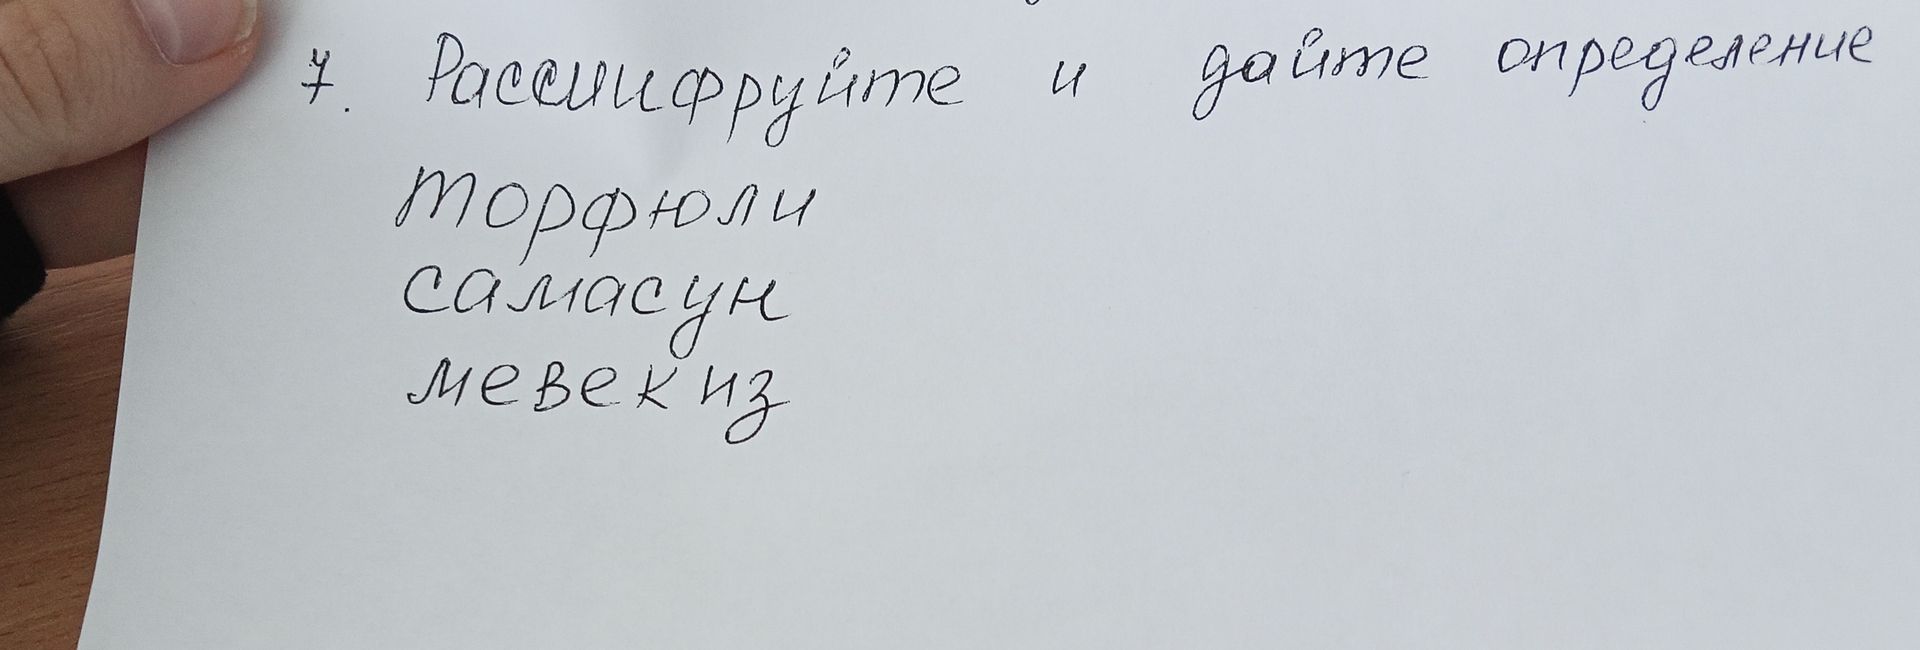 7. Рассшифруйте и дайте определение
торфюли
самасун
мевекиз